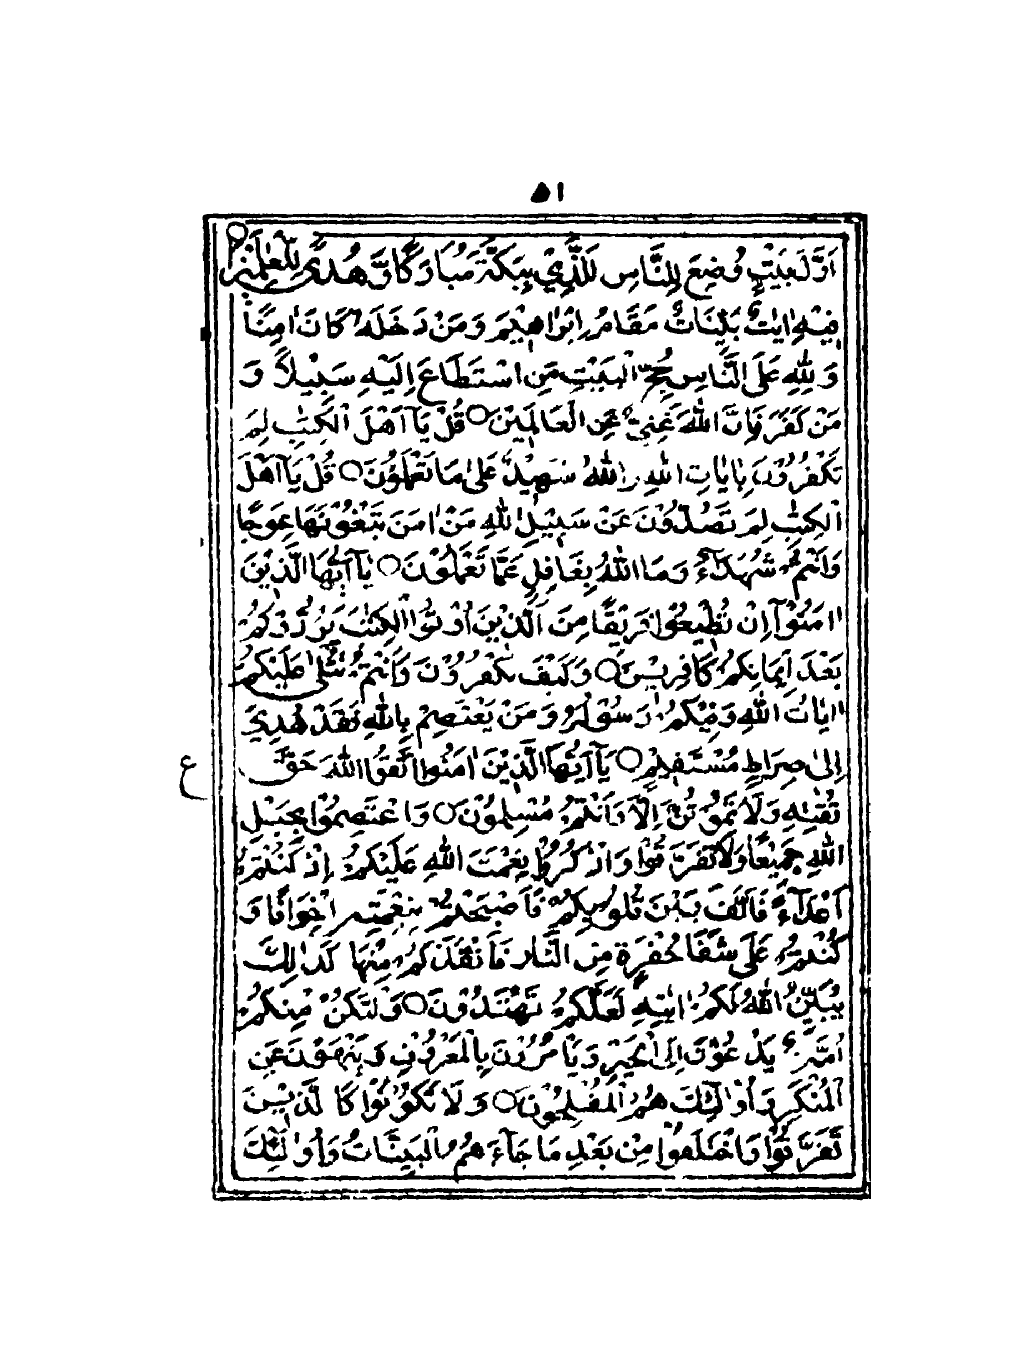 ٥١
اَوَّلَ بَيْتٍ وُضِعَ لِلنَّاسِ لَلَّذِيْ بِبَكَّةَ مُبَارَكًا وَّ هُدًى لِّلْعٰلَمِيْنَ ○
فِيْهِ اٰيٰتٌۢ بَيِّنَاتٌ مَقَامُ اِبْرَاهِيْمَ وَمَنْ دَخَلَهٗ كَانَ اٰمِنًا
وَ لِلّٰهِ عَلَى النَّاسِ حِجُّ الْبَيْتِ مَنِ اسْتَطَاعَ اِلَيْهِ سَبِيْلًا وَ
مَنْ كَفَرَ فَاِنَّ اللّٰهَ غَنِيٌّ عَنِ الْعَالَمِيْنَ ○ قُلْ يَآ اَهْلَ الْكِتٰبِ لِمَ
تَكْفُرُوْنَ بِاٰيَاتِ اللّٰهِ وَاللّٰهُ شَهِيْدٌ عَلٰى مَا تَعْمَلُوْنَ ○ قُلْ يَآ اَهْلَ
الْكِتٰبِ لِمَ تَصُدُّوْنَ عَنْ سَبِيْلِ اللّٰهِ مَنْ اٰمَنَ تَبْغُوْنَهَا عِوَجًا
وَاَنْتُمْ شُهَدَآءُ وَمَا اللّٰهُ بِغَافِلٍ عَمَّا تَعْمَلُوْنَ ○ يَآ اَيُّهَا الَّذِيْنَ
اٰمَنُوْآ اِنْ تُطِيْعُوْا فَرِيْقًا مِنَ الَّذِيْنَ اُوْتُوا الْكِتٰبَ يَرُدُّوْكُمْ
بَعْدَ اِيْمَانِكُمْ كَافِرِيْنَ ○ وَكَيْفَ تَكْفُرُوْنَ وَاَنْتُمْ تُتْلٰى عَلَيْكُمْ
اٰيَاتُ اللّٰهِ وَفِيْكُمْ رَسُوْلُهٗ وَمَنْ يَعْتَصِمْ بِاللّٰهِ فَقَدْ هُدِيَ
اِلٰى صِرَاطٍ مُسْتَقِيْمٍ ○ يَآ اَيُّهَا الَّذِيْنَ اٰمَنُوا اتَّقُوا اللّٰهَ حَقَّ
ع
تُقٰتِهٖ وَلَا تَمُوْتُنَّ اِلَّا وَاَنْتُمْ مُسْلِمُوْنَ ○ وَاعْتَصِمُوْا بِحَبْلِ
اللّٰهِ جَمِيْعًا وَلَا تَفَرَّقُوْا وَاذْكُرُوْا نِعْمَتَ اللّٰهِ عَلَيْكُمْ اِذْ كُنْتُمْ
اَعْدَآءً فَاَلَّفَ بَيْنَ قُلُوْبِكُمْ فَاَصْبَحْتُمْ بِنِعْمَتِهٖ اِخْوَانًا وَ
كُنْتُمْ عَلٰى شَفَا حُفْرَةٍ مِنَ النَّارِ فَاَنْقَذَكُمْ مِنْهَا كَذٰلِكَ
يُبَيِّنُ اللّٰهُ لَكُمْ اٰيٰتِهٖ لَعَلَّكُمْ تَهْتَدُوْنَ ○ وَلْتَكُنْ مِنْكُمْ
اُمَّةٌ يَدْعُوْنَ اِلَى الْخَيْرِ وَيَاْمُرُوْنَ بِالْمَعْرُوْفِ وَيَنْهَوْنَ عَنِ
الْمُنْكَرِ وَاُولٰٓئِكَ هُمُ الْمُفْلِحُوْنَ ○ وَلَا تَكُوْنُوْا كَالَّذِيْنَ
تَفَرَّقُوْا وَاخْتَلَفُوْا مِنْ بَعْدِ مَا جَآءَهُمُ الْبَيِّنَاتُ وَاُولٰٓئِكَ